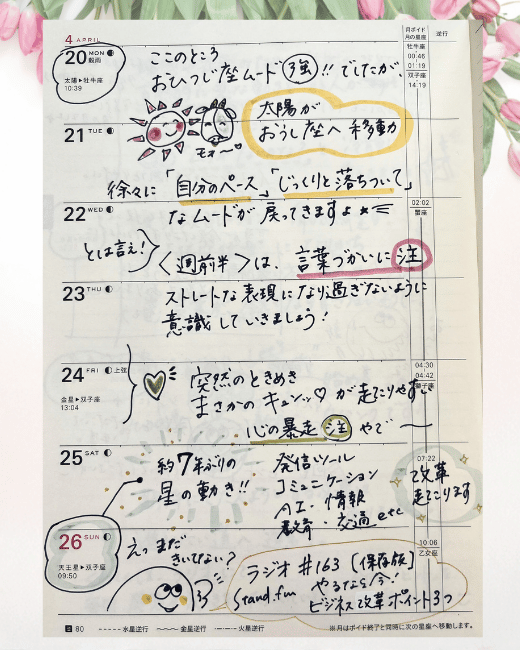 4 APRIL
月ボイド
月の星座
逆行
牡牛座
00:46
01:19
双子座
14:19
20 MON
穀雨
太陽▶牡牛座
10:39
ここのところ
おひつじ座ムード 強!! でしたが、
太陽が
おうし座へ 移動
21 TUE
モォ〜
徐々に「自分のペース」「じっくりと落ちついて」
22 WED
なムードが 戻ってきますよ
02:02
蟹座
とは言え!
〈週前半〉は、言葉づかいに 注
23 THU
ストレートな表現になり過ぎないように
意識していきましょう!
24 FRI 上弦
金星▶双子座
13:04
突然のときめき
まさかのキュンッ♡ が起こりやすい
04:30
04:42
獅子座
心の暴走 注 やで〜
25 SAT
約7年ぶりの
星の動き!!
発信ツール
コミュニケーション
AI・情報
教育・交通 etc
07:22
改革
起こります
26 SUN
天王星▶双子座
09:50
えっ まだ
きいてない?
10:06
乙女座
ラジオ #163 [保存版]
stand.fm やるなら今!
ビジネス改革ポイント3つ
80
水星逆行
金星逆行
火星逆行
※月はボイド終了と同時に次の星座へ移動します。